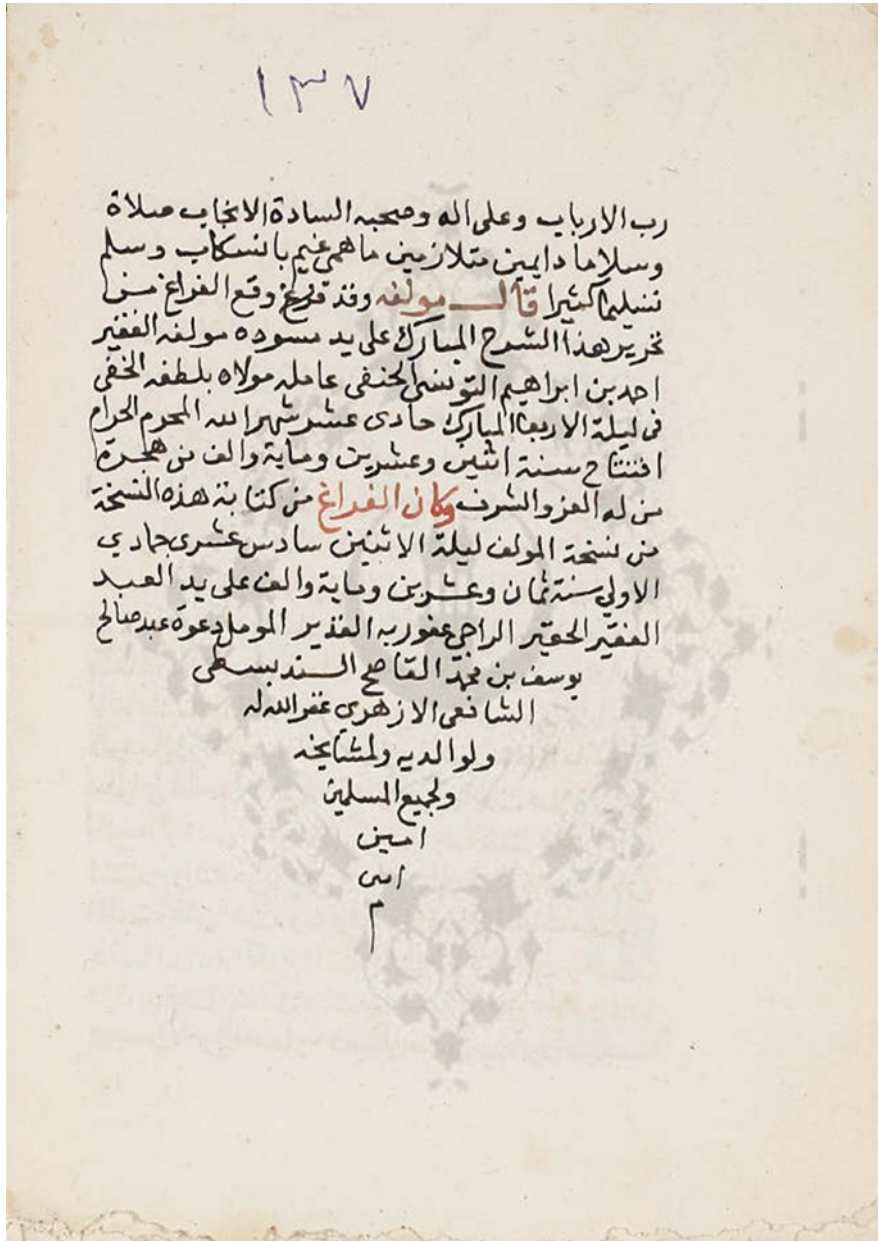 ١٣٧
رب الارباب وعلى اله وصحبه السادة الانجاب صلاة
وسلاما دايمين متلازمين ما همى غيم بانسكاب وسلم
تسليما كثيرا قال مولفه وقد فرغ وقع الفراغ من
تحرير هذا الشرح المبارك على يد مسوده مولفه الفقير
احمد بن ابراهيم التونسى الحنفى عامله مولاه بلطفه الخفى
فى ليلة الاربعا المبارك حادى عشر شهر الله المحرم الحرام
افتتاح سنة اثنين وعشرين وماية والف من هجرة
من له العز والشرف وكان الفراغ من كتابة هذه النسخة
من نسخة المولف ليلة الاثنين سادس عشرى جمادي
الاولي سنة ثمان وعشرين وماية والف على يد العبد
الفقير الحقير الراجي عفو ربه القدير المومل دعوة عبد صالح
يوسف بن محمد الفاضح السندبسطى
الشافعى الازهري غفر الله له
ولوالديه ولمشايخه
ولجميع المسلمين
امين
امى
م